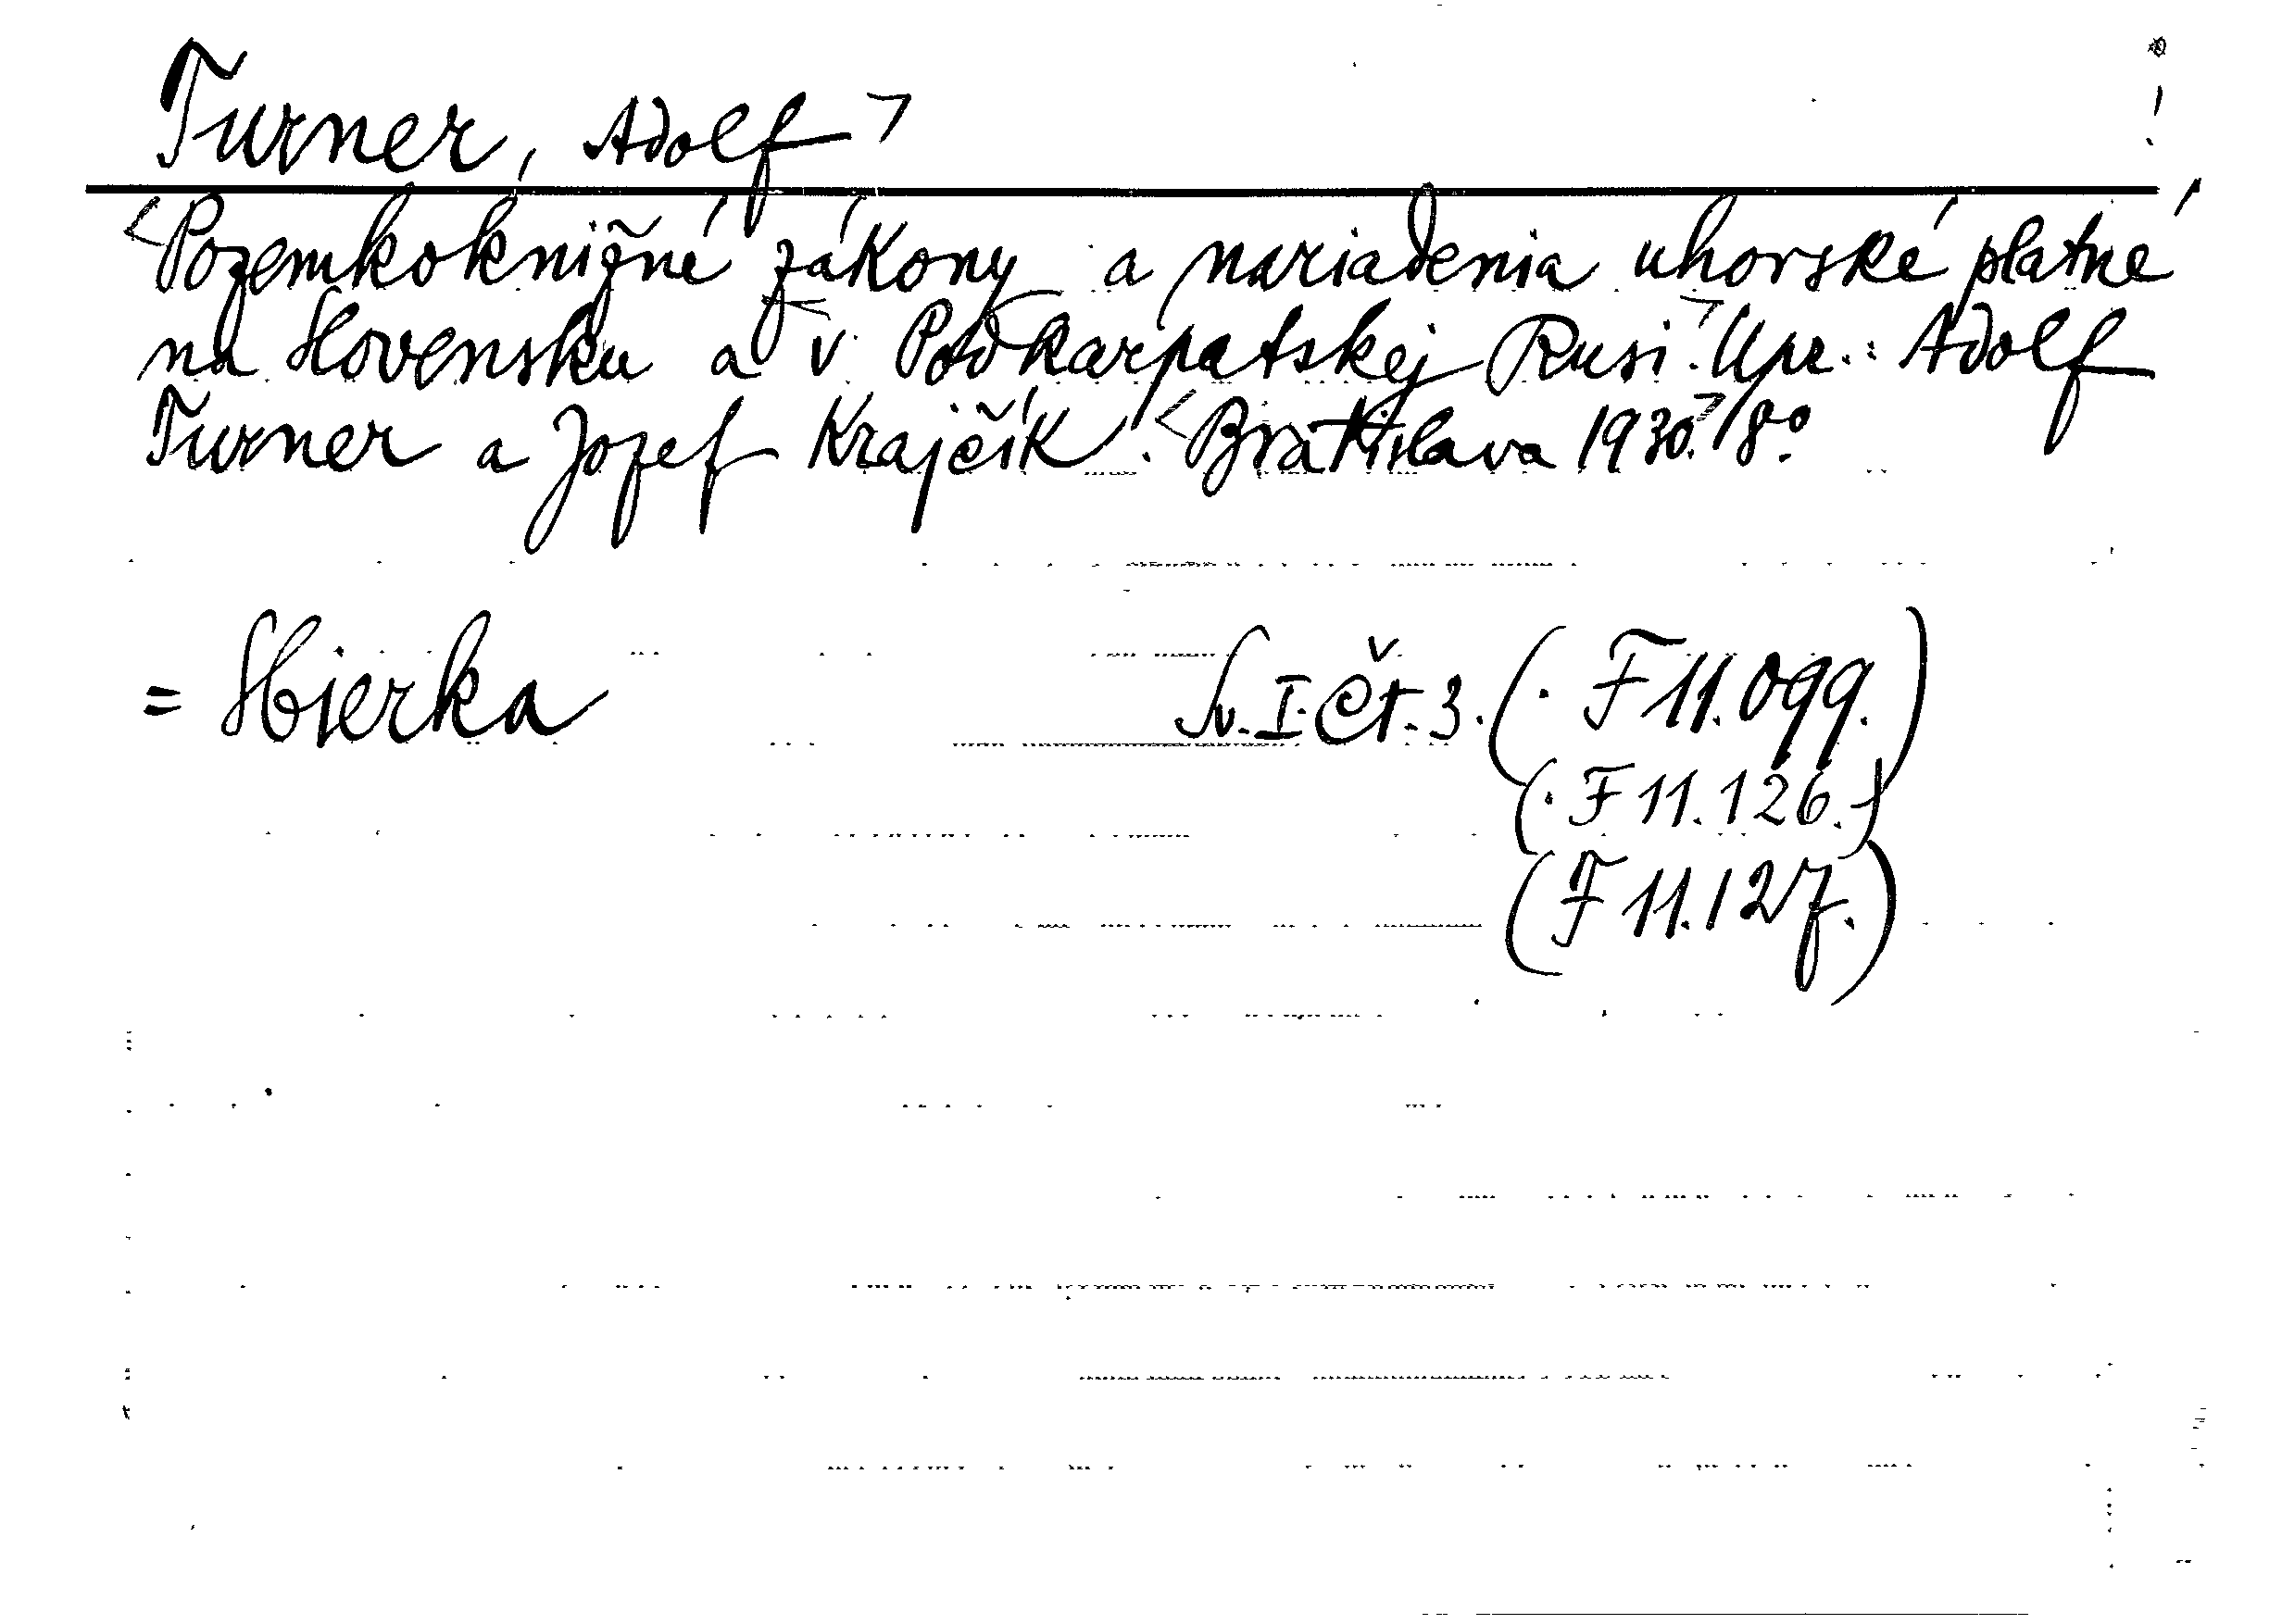 Turner, Adolf >
<Pozemkoknižné zákony a nariadenia uhorské platné
na Slovensku a v Podkarpatskej Rusi.> Upr.: Adolf
Turner a Jozef Krajčík. <Bratislava 1930.> 8º.
= Sbierka Sv. I. Čt. 3. (· F 11.099.)
(· F 11.126.)
(F 11.127.)